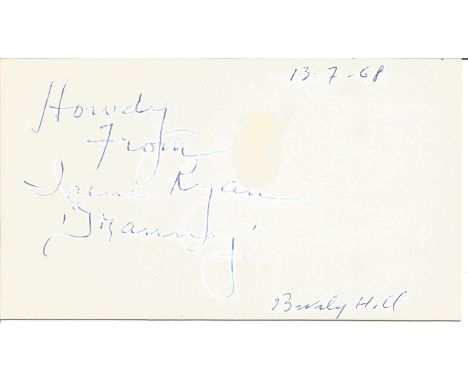 13-7-68
Howdy
From
Irene Ryan
"Granny"
Beverly Hill